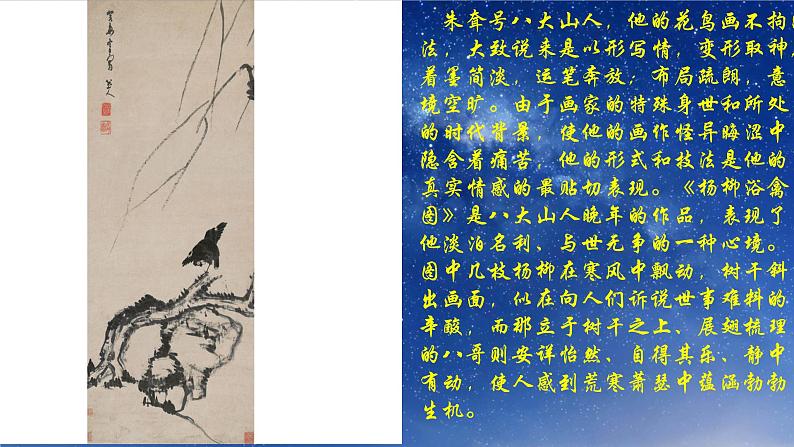 朱耷号八大山人，他的花鸟画不拘
法，大致说来是以形写情，变形取神，
着墨简淡，运笔奔放；布局疏朗，意
境空旷。由于画家的特殊身世和所处
的时代背景，使他的画作怪异晦涩中
隐含着痛苦，他的形式和技法是他的
真实情感的最贴切表现。《杨柳浴禽
图》是八大山人晚年的作品，表现了
他淡泊名利、与世无争的一种心境。
图中几枝杨柳在寒风中飘动，树干斜
出画面，似在向人们诉说世事难料的
辛酸，而那立于树干之上、展翅梳理
的八哥则安详怡然、自得其乐、静中
有动，使人感到荒寒萧瑟中蕴涵勃勃
生机。